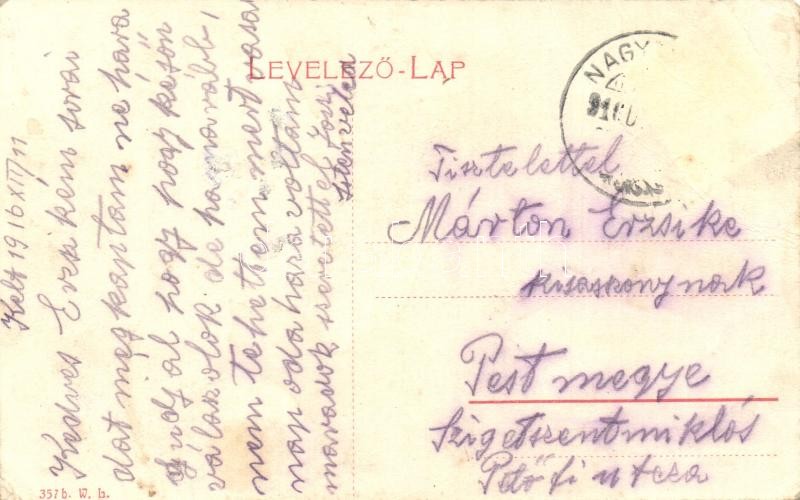 LEVELEZŐ-LAP
NAGY
916
Kelt 1916 XII/11
Kedves Erzsikém sorai
dat meg kaptam ne hara
gudjál hogy hogy késön
válakolok de hamarább,
nem tehettem mert
nap oda hara voltam
maradok szeretettel Józsi
Isten veled
Tisztelettel
Márton Erzsike
kisaskonynak
Pest megye
Szigetszentmiklós
Petőfi utcza
357 b. W. L.